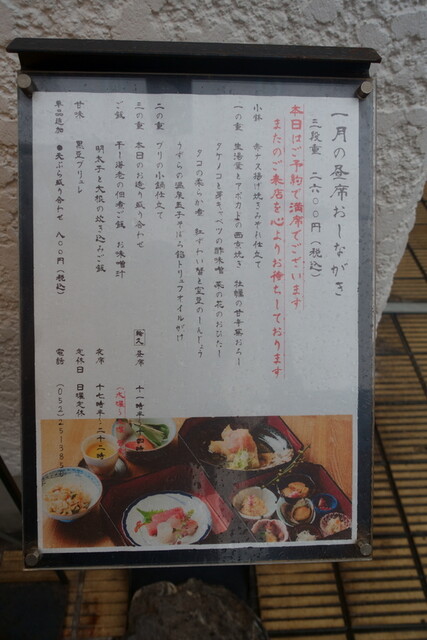 一月の昼席おしながき
三段重 二六〇〇円（税込）
本日はご予約で満席でございます
またのご来店を心よりお待ちしております
小鉢 赤ナス揚げ焼きみぞれ仕立て
一の重 生湯葉とアボカドの西京焼き 牡蠣の甘辛煮おろし
タケノコと芽キャベツの酢味噌 菜の花のおひたし
タコの柔らか煮 紅ずわい蟹と空豆の
うずらの温泉玉子そぼろ餡トリュフオイルがけ
二の重 ブリの小鍋仕立て
三の重 本日のお造り盛り合わせ
ご飯 干し海老の佃煮ご飯 お味噌汁
明太子と大根の炊き込みご飯
甘味 黒豆ブリュレ
単品追加 ●天ぷら盛り合わせ 八〇〇円（税込）
昼席 十一時半
（火曜〜
夜席 十七時半－二十二時
定休日 日曜定休
電話 （052）